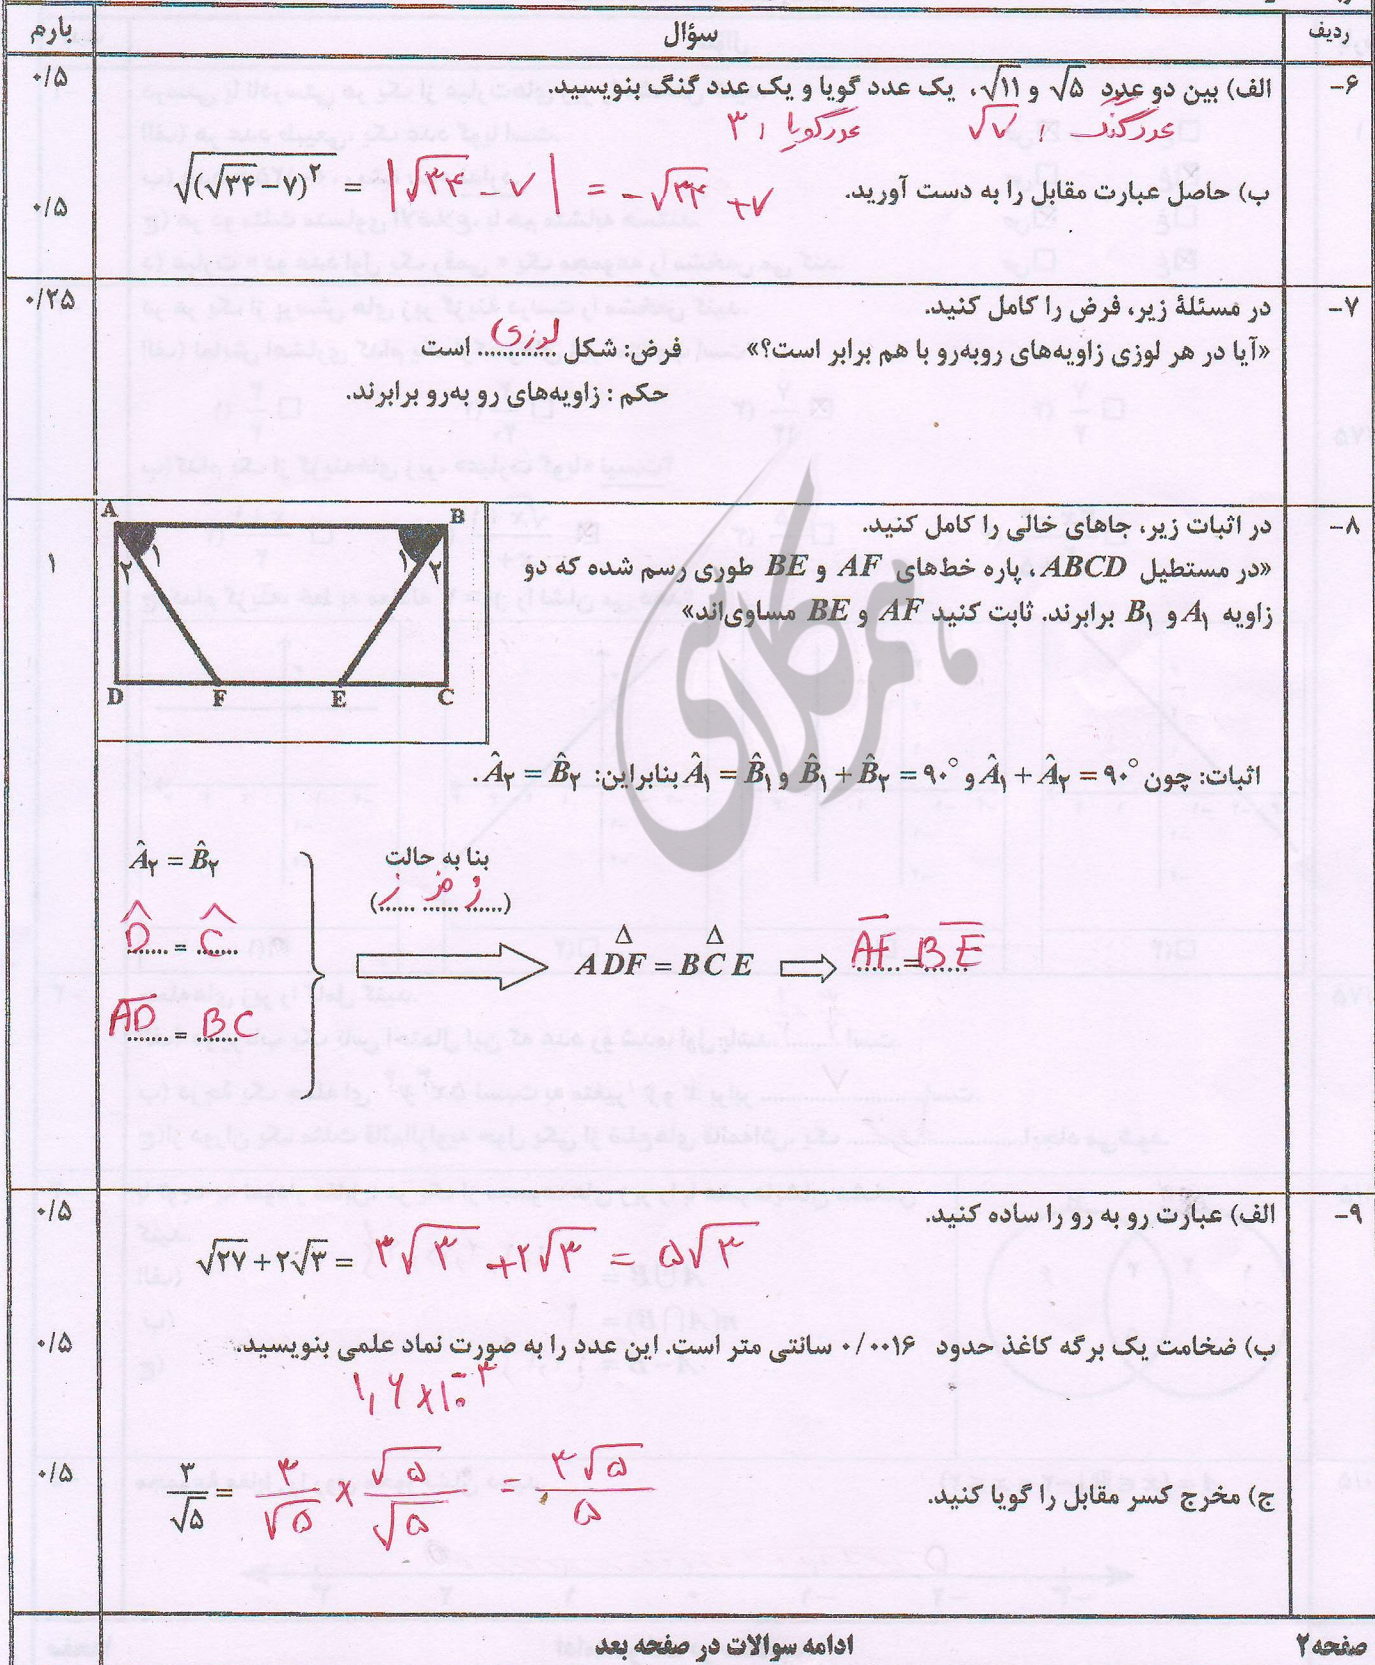 ردیف سؤال بارم
۶- الف) بین دو عدد √۵ و √۱۱، یک عدد گویا و یک عدد گنگ بنویسید. ۰/۵
عدد گنگ : √۷ عدد گویا : ۳
ب) حاصل عبارت مقابل را به دست آورید. √((√۳۴-۷)^۲) = |√۳۴ - ۷| = -√۳۴ + ۷ ۰/۵
۷- در مسئلهٔ زیر، فرض را کامل کنید. ۰/۲۵
«آیا در هر لوزی زاویه‌های روبه‌رو با هم برابر است؟» فرض: شکل لوزی است
حکم : زاویه‌های رو به‌رو برابرند.
۸- در اثبات زیر، جاهای خالی را کامل کنید. ۱
«در مستطیل ABCD، پاره خط‌های AF و BE طوری رسم شده که دو
زاویه A۱ و B۱ برابرند. ثابت کنید AF و BE مساوی‌اند»
A B
۲ ۱ ۱ ۲
D F E C
اثبات: چون Â۱ + Â۲ = ۹۰° و B̂۱ + B̂۲ = ۹۰° و Â۱ = B̂۱ بنابراین: Â۲ = B̂۲ .
Â۲ = B̂۲
بنا به حالت
(ز ض ز)
D̂ = Ĉ
ADF = BCE
AF = BE
AD = BC
۹- الف) عبارت رو به رو را ساده کنید. ۰/۵
√۲۷ + ۲√۳ = ۳√۳ + ۲√۳ = ۵√۳
ب) ضخامت یک برگه کاغذ حدود ۰/۰۰۱۶ سانتی متر است. این عدد را به صورت نماد علمی بنویسید. ۰/۵
۱,۶ × ۱۰^-۳
ج) مخرج کسر مقابل را گویا کنید. ۳/√۵ = ۳/√۵ × √۵/√۵ = ۳√۵/۵ ۰/۵
صفحه۲ ادامه سوالات در صفحه بعد